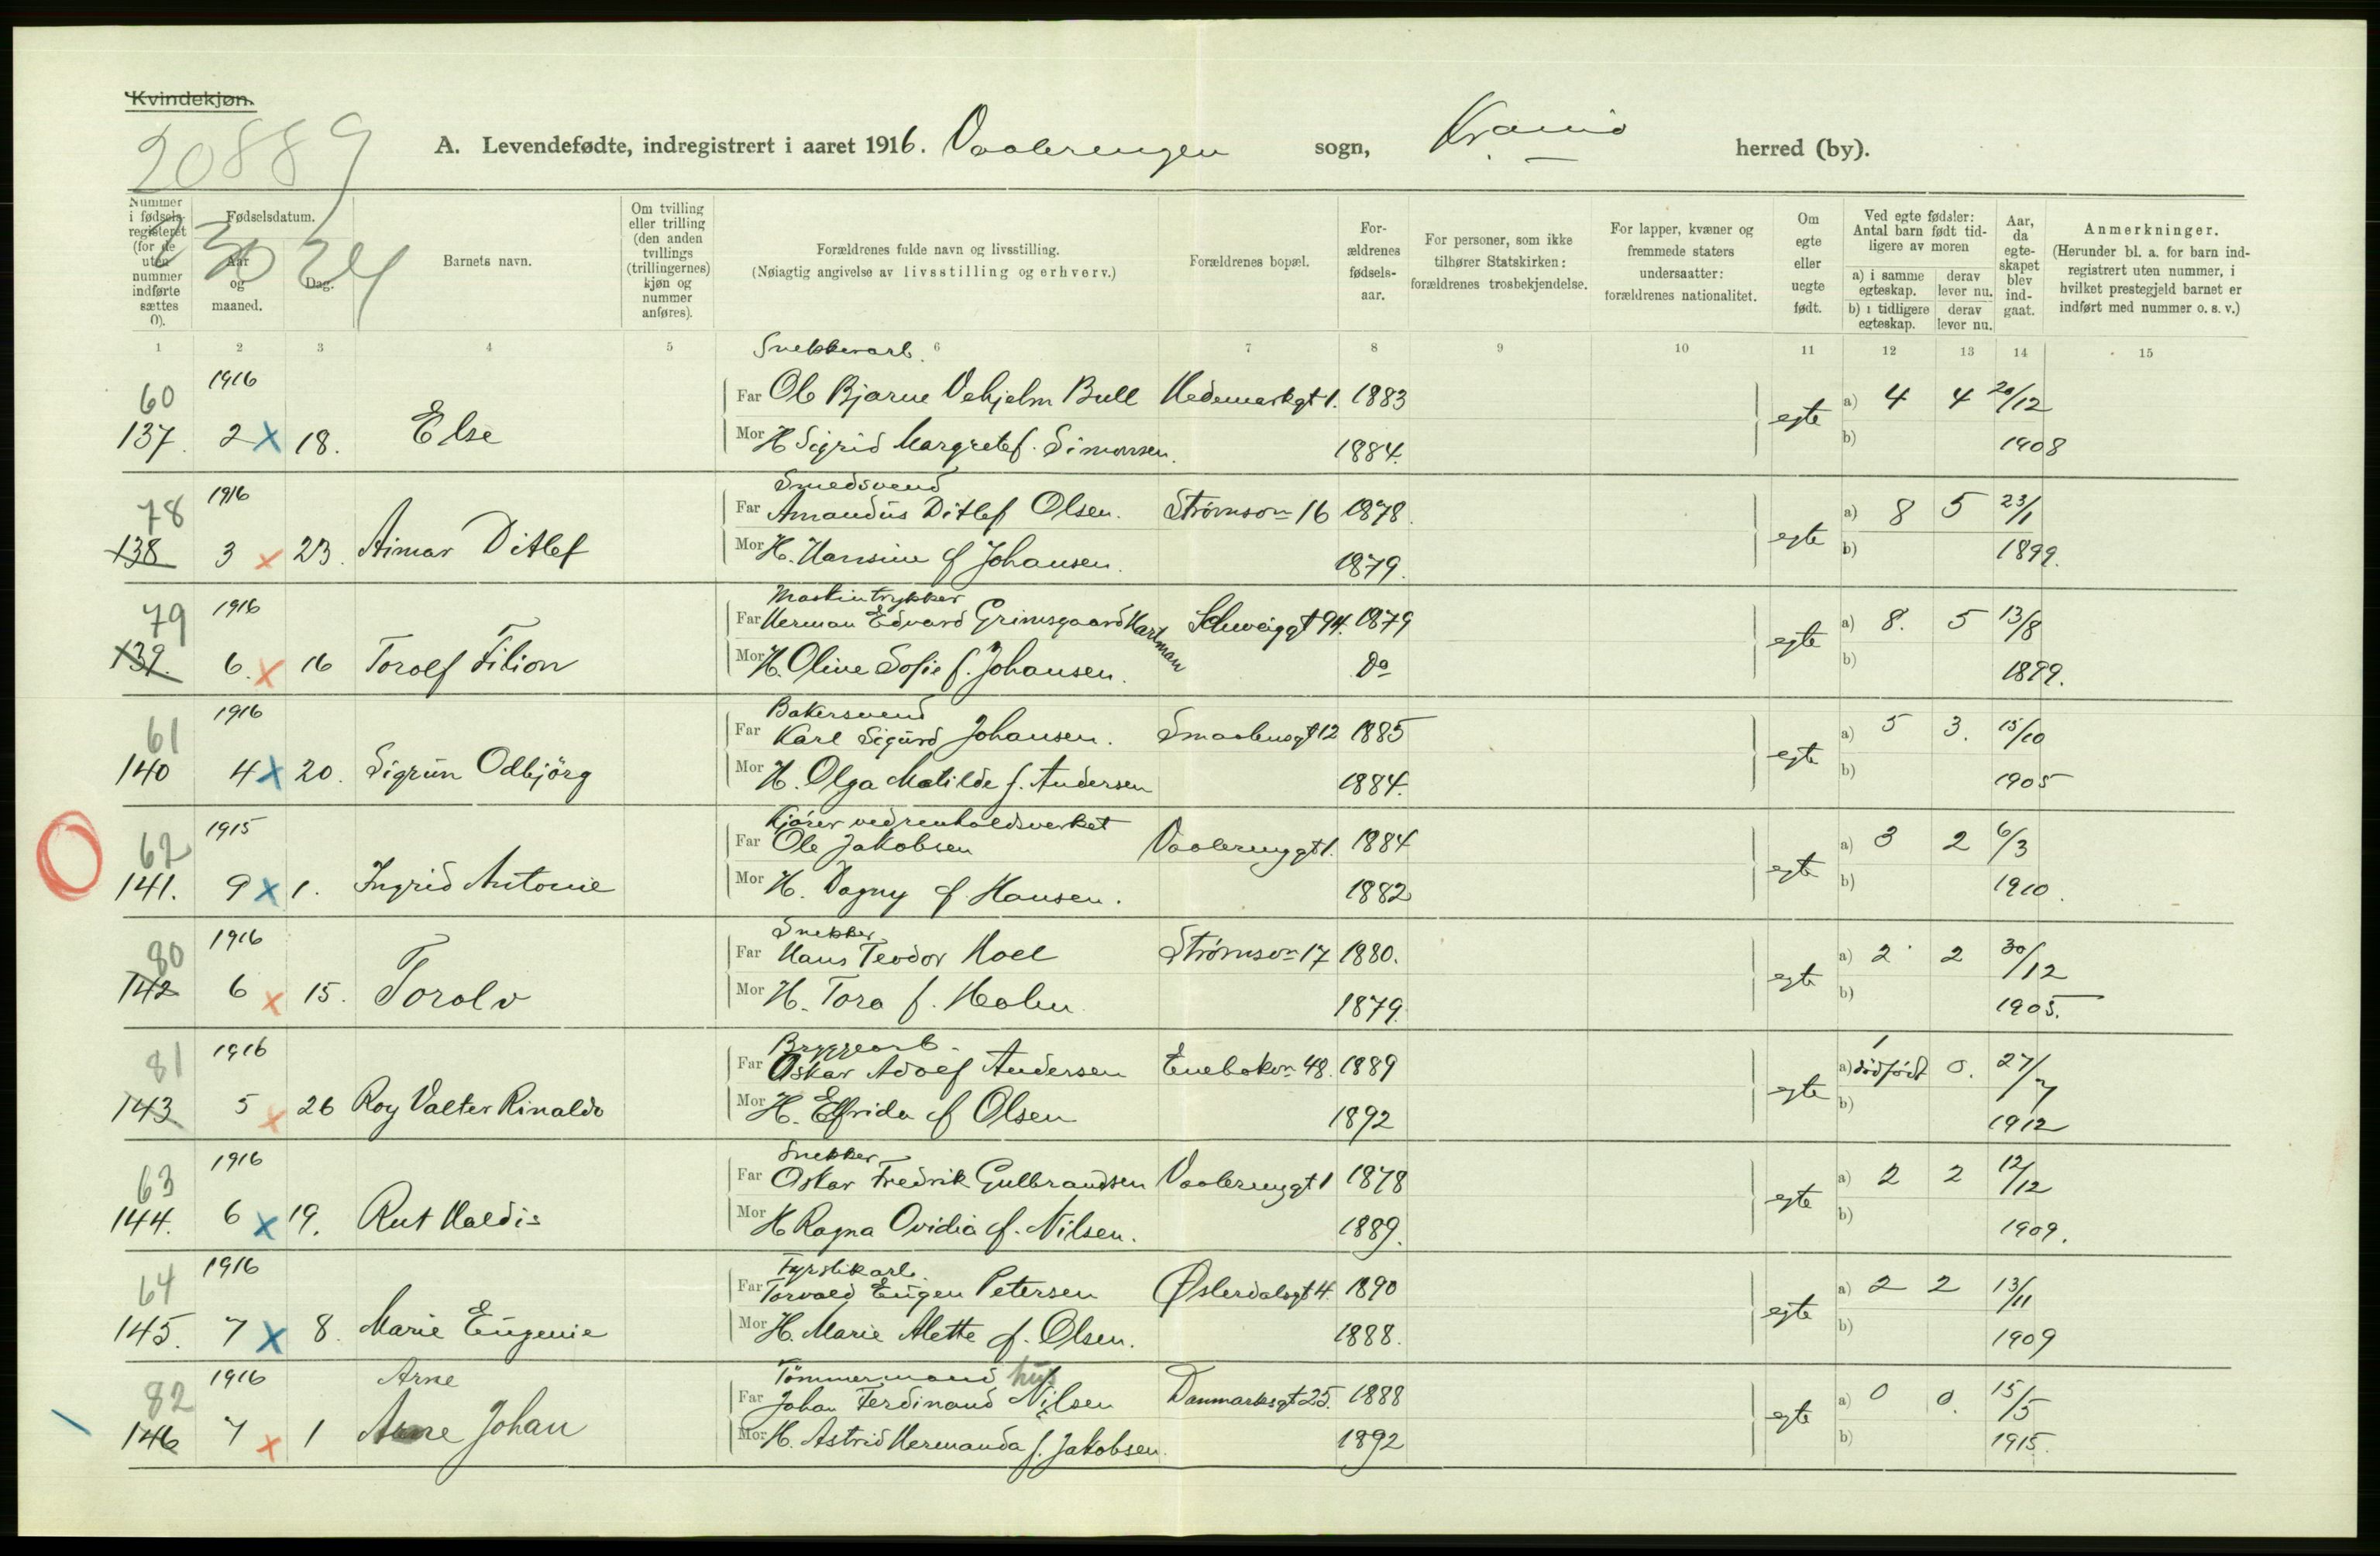 Kvindekjøn.
20889
A. Levendefødte, indregistrert i aaret 1916. Vaalerengen sogn, Kr.ania herred (by).
Nummer i fødselsregisteret (for de uten nummer indførte sættes 0).
Fødselsdatum.
Aar og maaned.
Dag.
Barnets navn.
Om tvilling eller trilling (den anden tvillings (trillingernes) kjøn og nummer anføres).
Forældrenes fulde navn og livsstilling.
(Nøiagtig angivelse av livsstilling og erhverv.)
Forældrenes bopæl.
Forældrenes fødselsaar.
For personer, som ikke tilhører Statskirken: forældrenes trosbekjendelse.
For lapper, kvæner og fremmede staters undersaatter: forældrenes nationalitet.
Om egte eller uegte født.
Ved egte fødsler: Antal barn født tidligere av moren
a) i samme egteskap. derav lever nu.
b) i tidligere egteskap. derav lever nu.
Aar, da egteskapet blev indgaat.
Anmerkninger.
(Herunder bl. a. for barn indregistrert uten nummer, i hvilket prestegjeld barnet er indført med nummer o. s. v.)
1 2 3 4 5 6 7 8 9 10 11 12 13 14 15
Snekkerarb.
60 1916 Far Ole Bjarne Vehjelm Bull Hedemarkgt 1. 1883 a) 4 4 20/12
137. 2 x 18. Else Mor H Sigrid Margrete f. Simonsen. 1884. egte b) 1908
Smedsvend
78 1916 Far Amandus Ditlef Olsen. Strømsvn 16 1878. a) 8 5 23/1
138 3 x 23. Aimar Ditlef Mor H. Hansine f Johansen. 1879. egte b) 1899.
Maskintrykker
79 1916 Far Herman Edvard Grimsgaard Hartman Schweiggt 94. 1879 a) 8. 5 13/8
139. 6. x 16 Torolf Filion Mor H. Oline Sofie f. Johansen. Do egte b) 1899.
Bakersvend
61 1916 Far Karl Sigurd Johansen. Smaalensgt 12 1885 a) 5 3. 15/10
140 4 x 20. Sigrun Odbjörg Mor H. Olga Matilde f. Andersen 1884. egte b) 1905
Kjører ved renholdsverket
62 1915 Far Ole Jakobsen Vaalerenggt 1. 1884 a) 3 2 6/3
141. 9 x 1. Ingrid Antonie Mor H. Dagny f Hansen. 1882 egte b) 1910.
Snekker
80 1916 Far Hans Teodor Moel Strømsvn 17 1880. a) 2 2 30/12
142 6 x 15. Torolv Mor H. Tora f. Holm 1879. egte b) 1905.
Bryggearb.
81 1916 Far Oskar Adolf Andersen Enebakvn 48. 1889 a) 1 dödfödt 0. 27/7
143 5 x 26 Roy Valter Rinaldo Mor H. Elfrida f Olsen 1892 egte b) 1912
Snekker
63 1916 Far Oskar Fredrik Gulbrandsen Vaalerenggt 1 1878 a) 2 2 12/12
144. 6 x 19. Rut Haldis Mor H Ragna Ovidia f. Nilsen. 1889. egte b) 1909.
Fyrstikarb.
64 1916 Far Torvald Eugen Petersen Østerdalsgt 4. 1890 a) 2 2 13/11
145. 7 x 8. Marie Eugenie Mor H. Marie Alette f. Olsen. 1888. egte b) 1909
Tömmermand hus
82 1916 Arne Far Johan Ferdinand Nilsen Danmarksgt 25. 1888 a) 0 0. 15/5
146 7 x 1 Arne Johan Mor H. Astrid Hermanda f. Jakobsen. 1892 egte b) 1915.